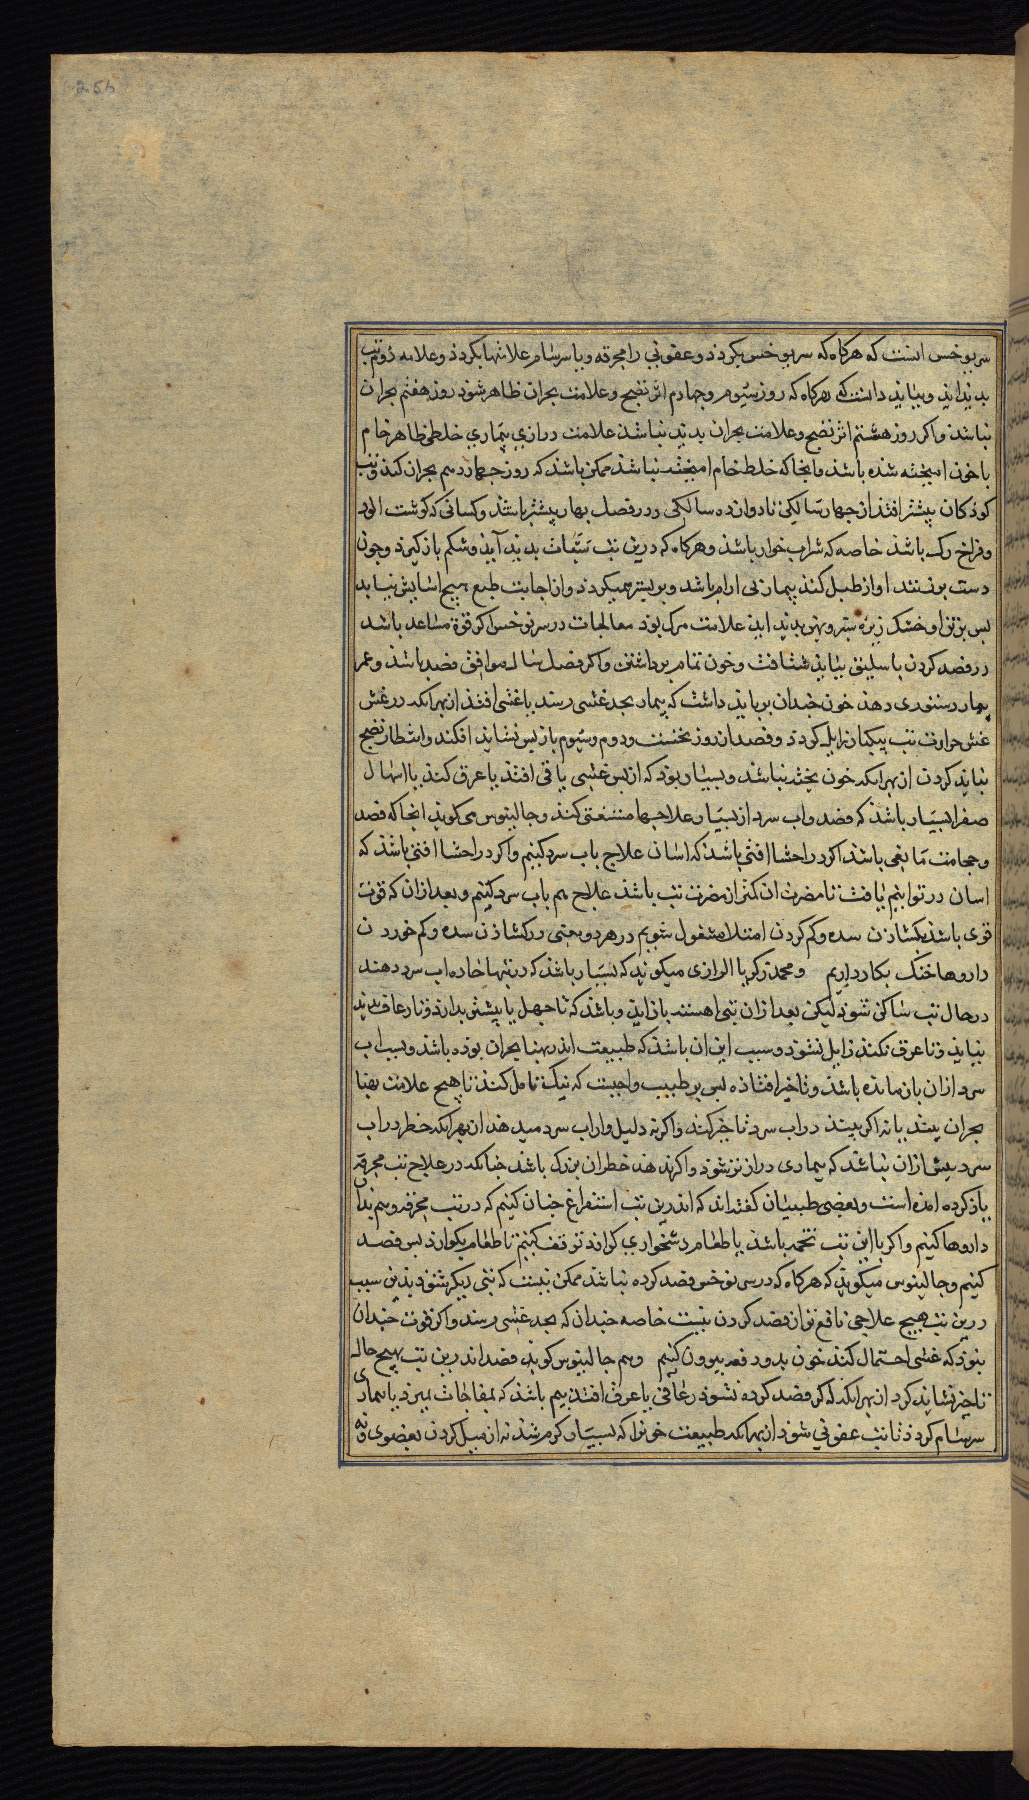 256
سریوخس انست که هرکاه که سریوخس بکردذ و عفونی را محرقه و یا سرسام علامتها بکردذ و علامه دوم تب
بدیدایذ و بباید دانست که هرکاه که روز سیوم و چهارم اثر نضج و علامت بحران ظاهر شوذ روز هفتم بحران
نباشذ و اکر روز هشتم اثر نضج و علامت بحران بدید نباشذ علامت درازی بیماری خلطی ظاهر خام
با خون امیخته شده باشذ و انجا که خلط خام امیخته نباشذ ممکن باشذ که روز چهاردهم بحران کند و تب
کوذکان بیشتر افتذ از چهار سالکی تا دوازده سالکی و در فصل بهار بیشتر باشذ و کسانی که کوشت الوذ
و فراخ رک باشذ خاصه که شراب خوار باشذ و هرکاه که درین تب سبات بدید آیذ و شکم باز کیرذ و چون
دست برزنند اواز طبل کند بیمار بی ارام باشد و بر بستر همیکردذ و از اجابت طبع هیچ اسایش نیابد
بس بر تن او خشک ریزه سبز و بهن بدید ایذ علامت مرک بوذ معالجات در سونوخس اکر قوة مساعد باشد
در فصد کردن باسلیق بباید شتافت و خون تمام برداشتن و اکر فصل سال موافق فصد باشذ و عمر
بیمار دستوری دهذ خون چندان بر باید داشت که بیمار بحد غشی رسد یا غشی افتذ از بهر انکه در غشی
غش حرارت تب بیکبار زایل کردذ و فصد از روز نخست و دوم و سیوم باز پس نشاید افکند و انتظار نضج
نباید کردن از بهر انکه خون پخته نباشذ و بسیار بوذ که از پس غشی یا قی افتذ یا عرق کند یا اسهال
صفرا بسیار باشذ که فصد و اب سرد از بسیار علاجها مستغنی کند و جالینوس می کوید انجا که فصد
و حجامت مانعی باشذ اکر در احشا افتی باشذ که اسان علاج باب سرد کنیم و اکر در احشا افتی باشذ که
اسان در توانیم یافت تا مضرت ان کمتر از مضرت تب باشذ علاج هم باب سرد کنیم و بعد از ان که قوت
قوی باشذ بکشاذن سده و کم کردن امتلا مشغول شویم در هر دو معنی در کشاذن سده و کم خوردن
داروها خنک بکار داریم و محمد زکریا الرازی میکوید که بسیار باشذ که در تبها حاده اب سرد دهند
در حال تب ساکن شوذ لیکن بعد از ان تبی اهسته باز ایذ و باشذ که تا چهل یا بیشتر بدارذ و تا رعاف بدید
نیاید و تا عرق نکند زایل نشوذ و سبب این ان باشذ که طبیعت اندر تهیا بحران بوذه باشذ و بسبب اب
سرد از ان باز مانده باشذ و تاخیر افتاذه بس بر طبیب واجبست که نیک تامل کند تا هیچ علامت تهیا
بحران بیند یا نه اکر بیند در اب سرد تاخیر کند و اکر نه دلیل وار اب سرد میدهذ از بهر انکه خطر در اب
سرد بیش از ان نباشد که بیماری درازتر شوذ و اکر ندهند خطر ان بزرک باشذ چنانکه در علاج تب محرقه
یاذ کرده امذه است و بعضی طبیبان کفته اند که اندرین تب استفراغ چنان کنیم که در تب محرقه و هم بدان
داروها کنیم و اکر با این تب تخمه باشذ یا طعام دشخواری کوارد توقف کنیم تا طعام بکوارذ بس فصد
کنیم و جالینوس میکوید که هرکاه که در سونوخس فصد کرده نباشذ ممکن نیست که تبی دیکر نشوذ بدین سبب
درین تب هیچ علاجی نافع تر از فصد کردن نیست خاصه چندان که بحد غشی رسد و اکر قوت چندان
نبوذ که غشی احتمال کند خون بدو دفعه بیرون کنیم و هم جالینوس کوید فصد اندرین تب بهیچ حال
تاخیر نشاید کرد از بهر انکه اکر فصد کرده نشوذ رعافی یا عرق افتد بیم باشذ که بمفاجات بمیرد یا بیماری
سرسام کردذ تا تب عفونی شوذ از بهر انکه طبیعت خون را که بسیار و کرم شد نه از میل کردن بعضوی و نه